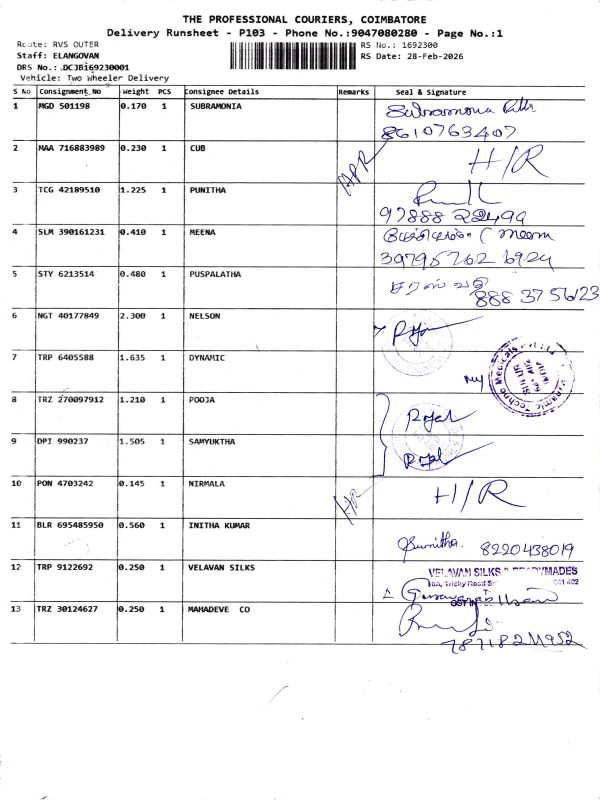 THE PROFESSIONAL COURIERS, COIMBATORE
Delivery Runsheet - P103 - Phone No.:9047080280 - Page No.:1
Route: RVS OUTER
RS No.: 1692300
Staff: ELANGOVAN
RS Date: 28-Feb-2026
DRS No.: .DCJB169230001
Vehicle: Two Wheeler Delivery
S No Consignment No Weight PCS Consignee Details Remarks Seal & Signature
1 MGD 501198 0.170 1 SUBRAMONIA
8610763407
2 MAA 716883989 0.230 1 CUB H/R
3 TCG 42189510 1.225 1 PUNITHA
97888 22499
4 SLM 390161231 0.410 1 MEENA
5 STY 6213514 0.480 1 PUSPALATHA சரஸ்வதி
6 NGT 40177849 2.300 1 NELSON
7 TRP 6405588 1.635 1 DYNAMIC
8 TRZ 270097912 1.210 1 POOJA
9 DPI 990237 1.505 1 SAMYUKTHA
10 PON 4703242 0.145 1 NIRMALA H/R
11 BLR 695485950 0.560 1 INITHA KUMAR
Sunitha. 8220438019
12 TRP 9122692 0.250 1 VELAVAN SILKS VELAVAN SILKS
13 TRZ 30124627 0.250 1 MAHADEVE CO